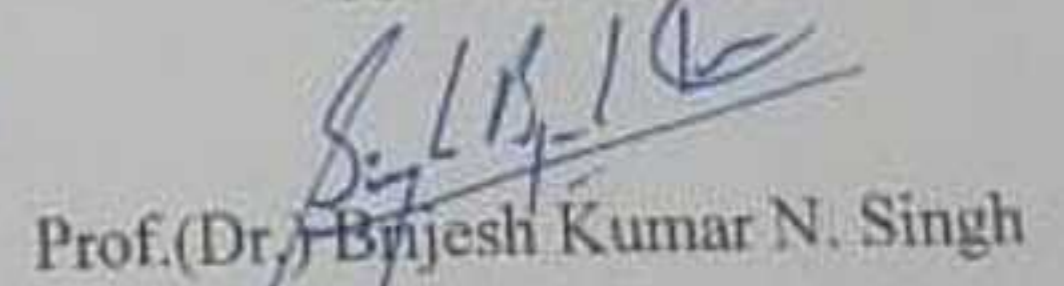 Prof.(Dr.) Brijesh Kumar N. Singh